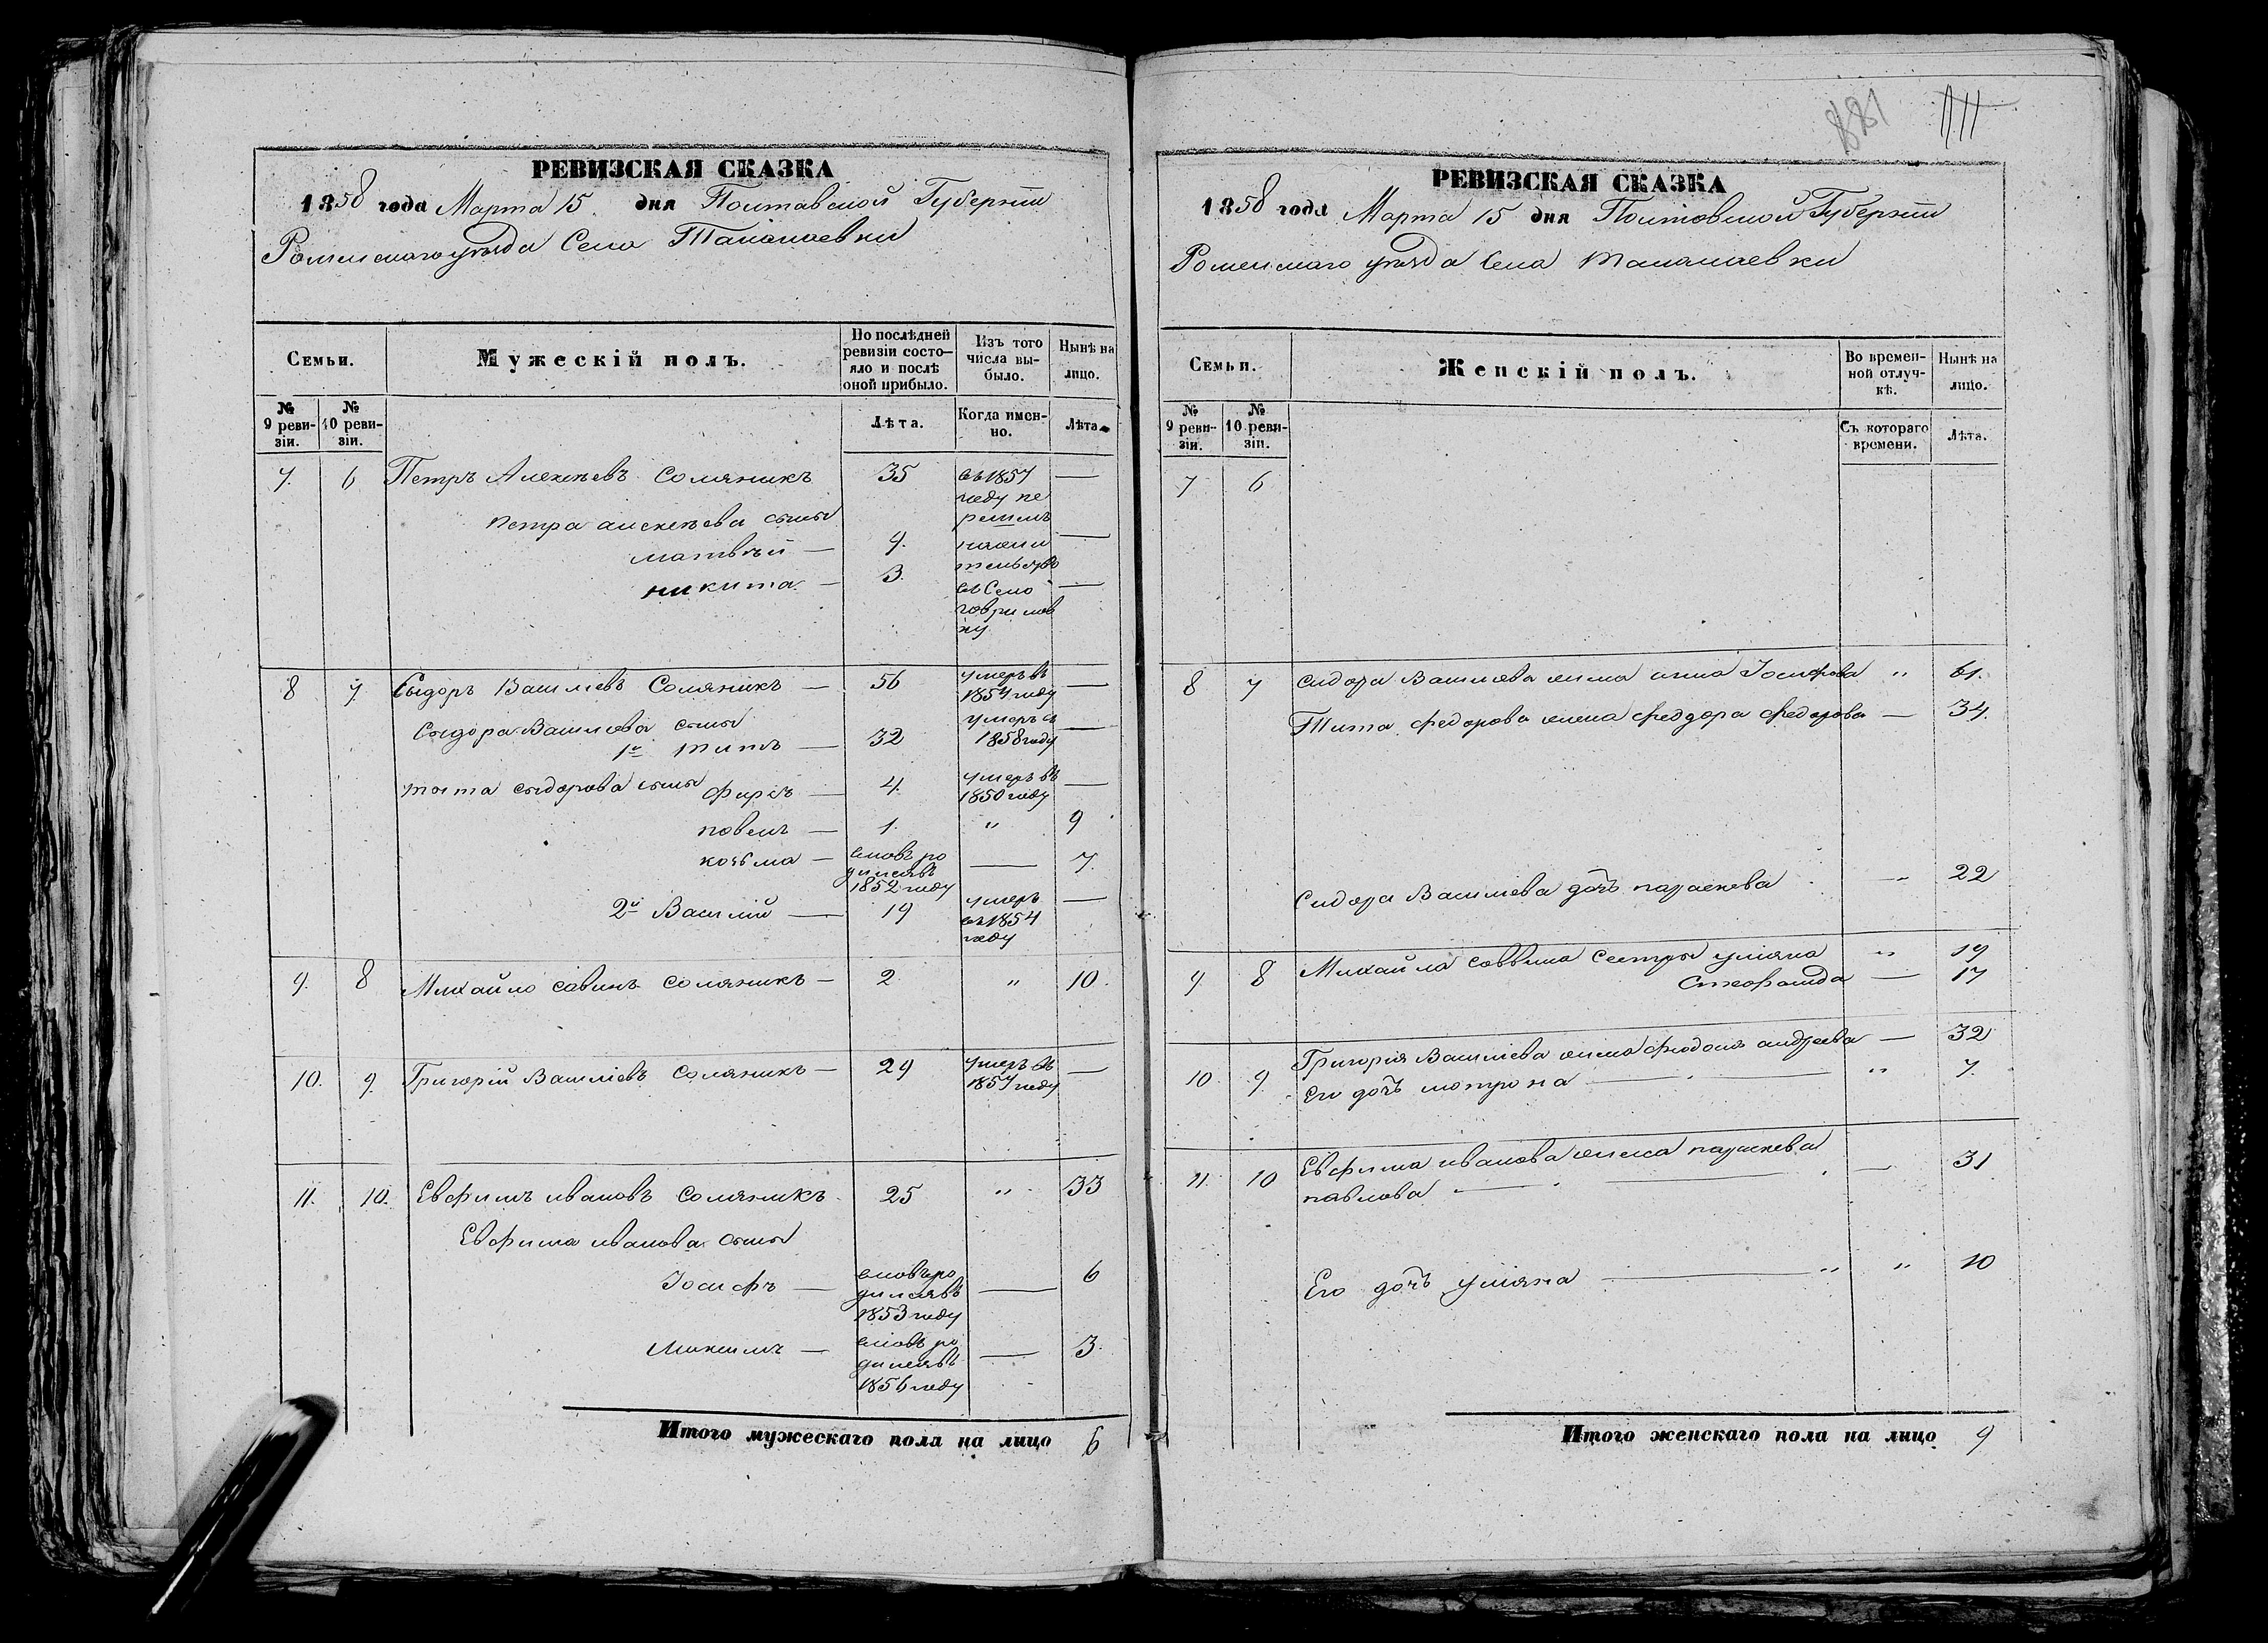 РЕВИЗСКАЯ СКАЗКА
1858 года Марта 15 дня Полтавской Губерніи
Роменскаго уѣзда Села Талалаевки
Семьи.
Мужескій полъ.
По послѣдней ревизіи состояло и послѣ оной прибыло.
Изъ того числа выбыло.
Нынѣ на лицо.
№ 9 ревизіи.
№ 10 ревизіи.
Лѣта.
Когда именно.
Лѣта.
7. 6 Петръ Алексѣевъ Соляникъ 35 въ 1857 году перешелъ на жительство въ Село Гавриловку —
Петра Алексѣева сыны
Матвѣй — 9. —
Никита — 3. —
8 7. Сыдоръ Василіевъ Соляникъ — 56 умеръ въ 1857 году —
Сыдора Василіева сыны
1й Титъ — 32 умеръ въ 1858 году —
Тита Сыдорова сыны Фирсъ — 4. умеръ въ 1850 году —
Павелъ — 1. " 9
Козьма — вновь родился въ 1852 году — 7.
2й Василій — 19 умеръ въ 1854 году —
9. 8 Михайло Савинъ Соляникъ — 2 " 10.
10. 9. Григорій Василіевъ Соляникъ — 29 умеръ въ 1857 году —
11. 10. Евфимъ Ивановъ Соляникъ 25 " 33
Евфима Иванова сыны
Іосифъ — вновь родился въ 1853 году — 6
Максимъ — вновь родился въ 1856 году — 3.
Итого мужескаго пола на лицо 6
881
РЕВИЗСКАЯ СКАЗКА
1858 года Марта 15 дня Полтавской Губерніи
Роменскаго уѣзда Села Талалаевки
Семьи.
Женскій полъ.
Во временной отлучкѣ.
Нынѣ на лицо.
№ 9 ревизіи.
№ 10 ревизіи.
Съ котораго времени.
Лѣта.
7 6
8 7 Сидора Василіева жена Анна Іосифова " 61.
Тита Федорова жена Феддора Федорова — 34.
Сидора Василіева дочь Параскева — 22
9 8 Михайла Саввина Сестры Уліяна " 19
Стефанида — 17
10. 9. Григорія Василіева жена Андреева — 32
Его дочь Мотрона — " 7.
11. 10 Евфима Иванова жена Параскева
Павлова — — 31
Его дочь Уліяна — " 10
Итого женскаго пола на лицо 9